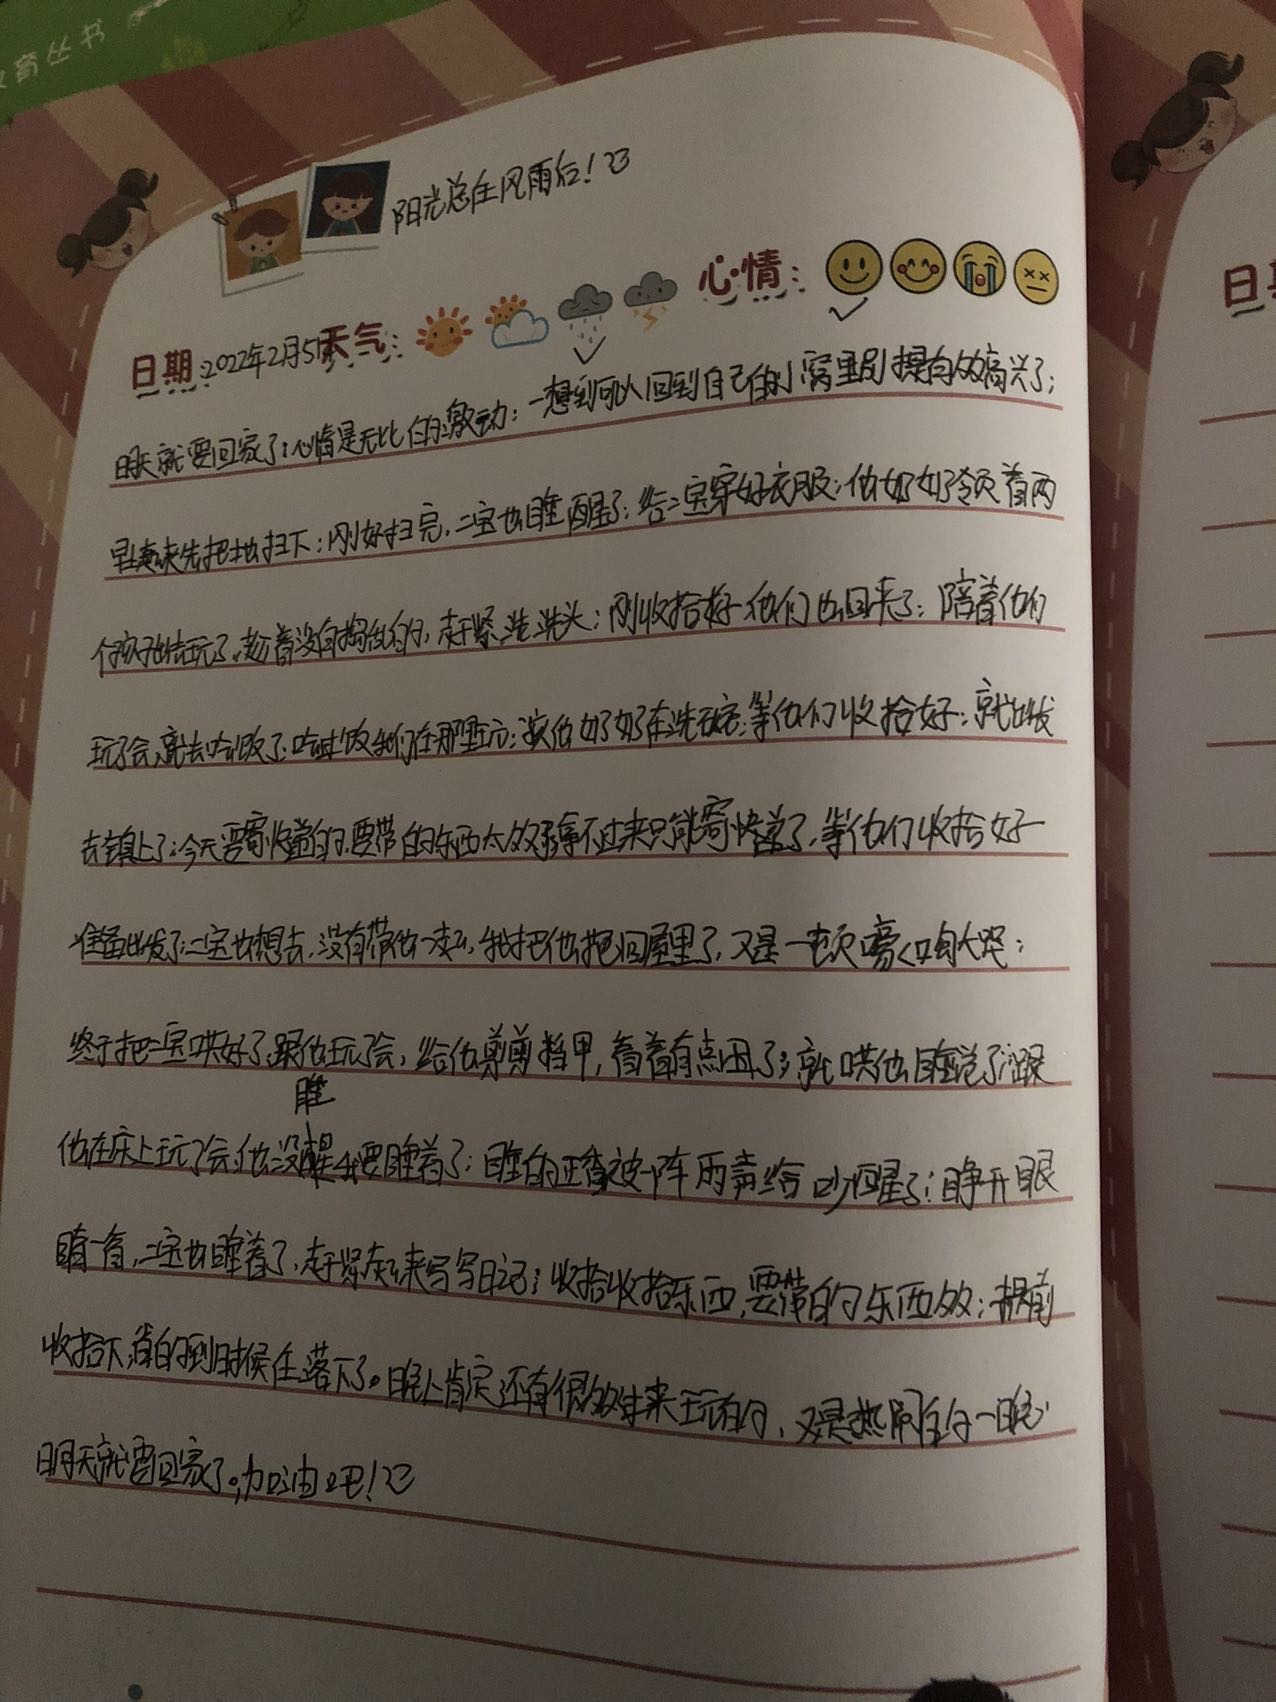 育丛书
阳光总在风雨后！
日期：2022年2月5 天气： 心情：
明天就要回家了；心情是无比的激动；一想到可以回到自己的小窝里别提有多高兴了；
早起来先把地扫下；刚好扫完，二宝也睡醒了；给二宝穿好衣服；他奶奶领着两
个孩子出去玩了，趁着没有捣乱的，赶紧洗洗头；刚收拾好他们也回来了；陪着他们
玩了会，就去吃饭了；吃过饭他们在那里玩；孩他奶奶在洗碗；等他们收拾好；就出发
去镇上了；今天要寄快递的，要带的东西太多了拿不过来只能寄快递了，等他们收拾好
准备出发了；二宝也想去，没有带他去，我把他抱回屋里了，又是一顿嗷嗷大哭；
终于把二宝哄好了，跟他玩了会，给他剪剪指甲，看着有点丑了；就哄他睡觉了；跟
他在床上玩了会，他没睡我要睡着了；睡的正香被一阵雨声给吵醒了；睁开眼
睛一看，二宝也睡着了，赶紧起来写写日记；收拾收拾东西，要带的东西多；提前
收拾下，省的到时候在落下了。晚上肯定还有很多过来玩的，又是热闹的一晚
明天就要回家了。加油吧！
日